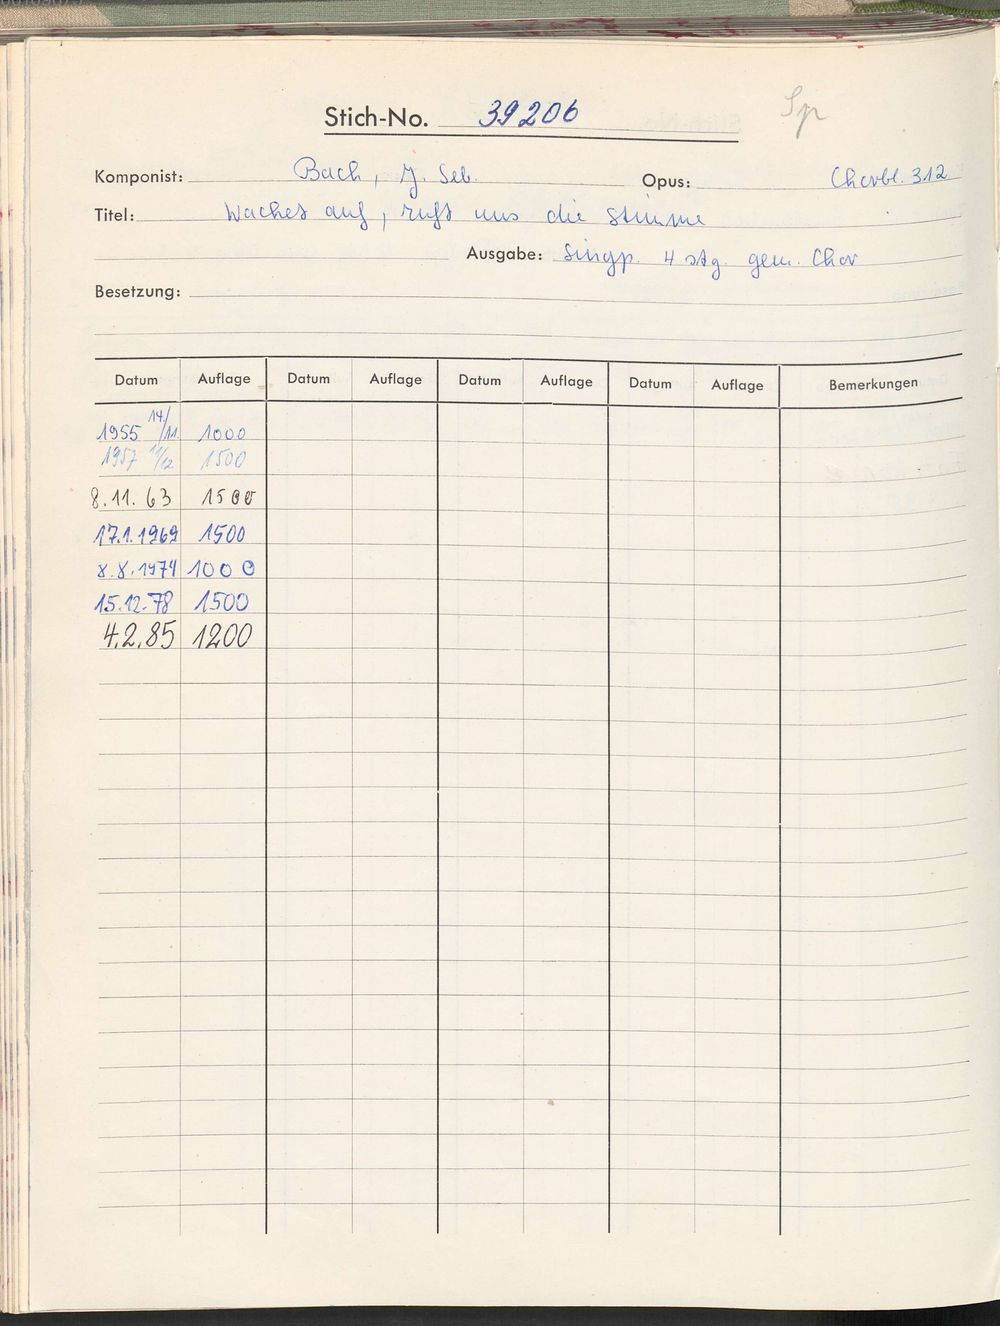 Sp
Stich-No. 39206
Komponist: Bach, J. Seb. Opus: Chorbl. 312
Titel: Wachet auf, ruft uns die Stimme
Ausgabe: Singp. 4 stg. gem. Chor
Besetzung:
Datum Auflage Datum Auflage Datum Auflage Datum Auflage Bemerkungen
1955 14/11. 1000
1957 1500
8.11.63 1500
17.1.1969 1500
8.8.1974 1000
15.12.78 1500
4.2.85 1200